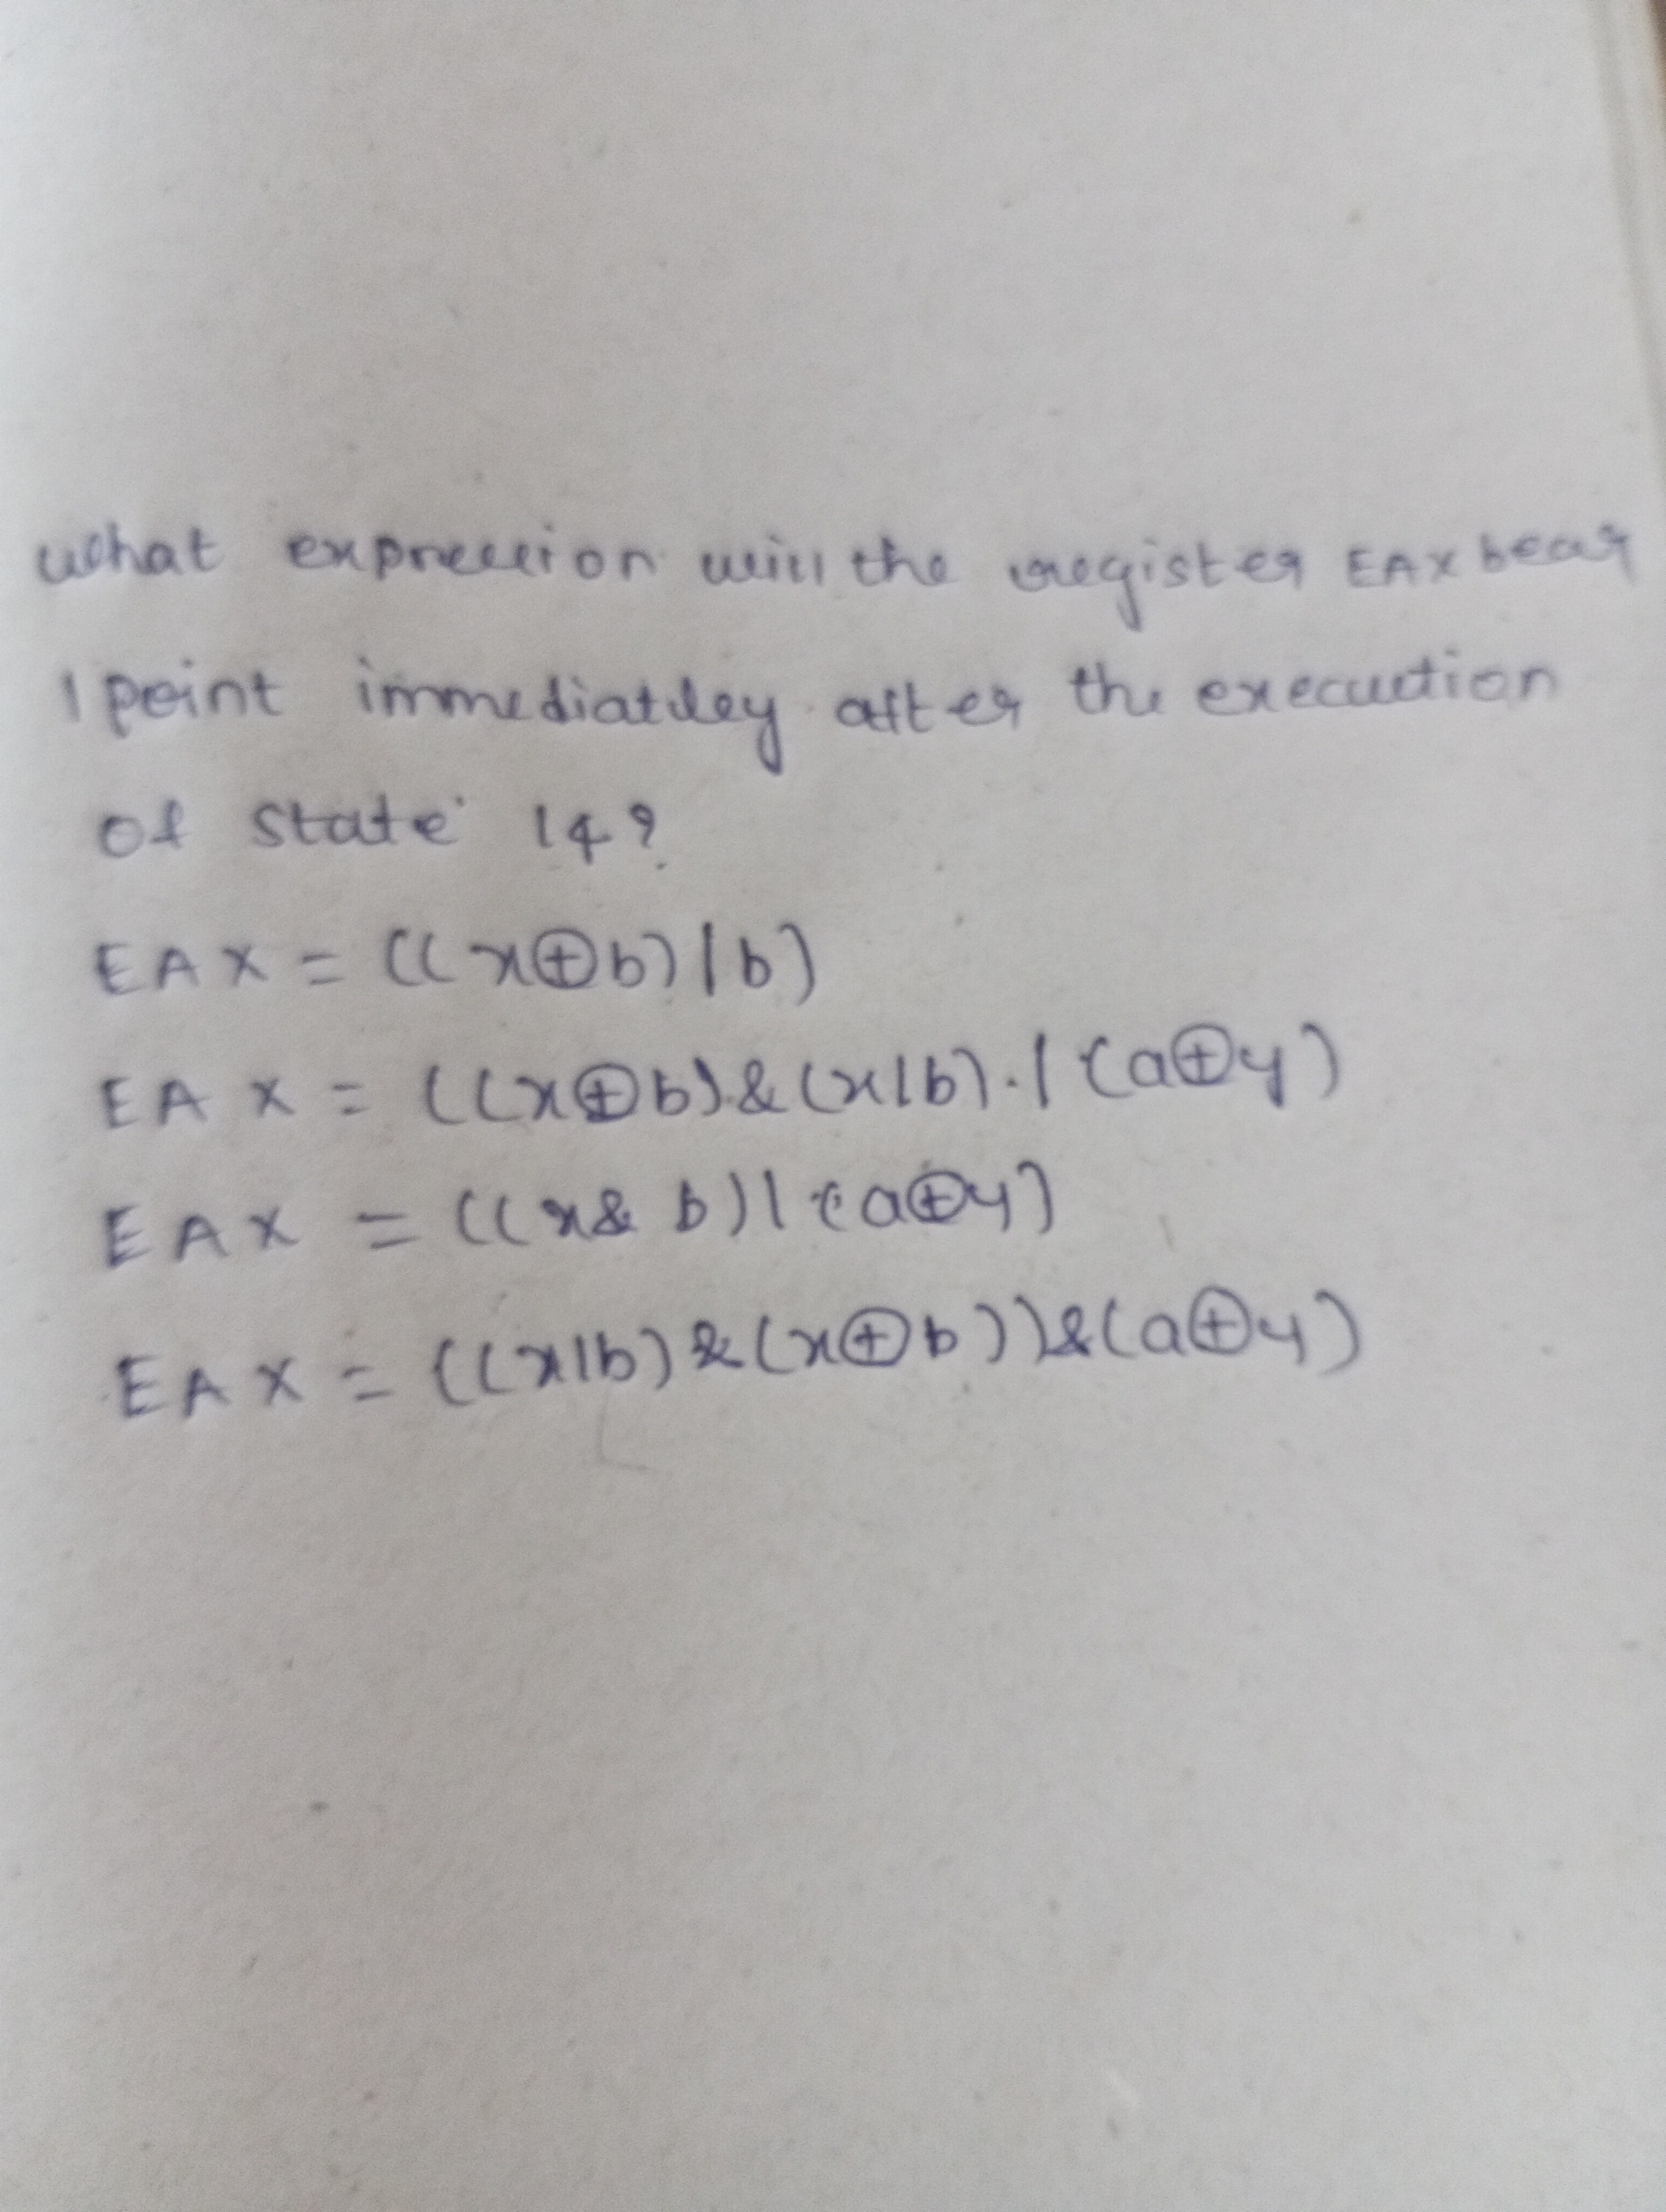 what expression will the register EAX bear
1 point immediatley after the execuction
of state 14?
EAX = ((x⊕b)|b)
EAX = ((x⊕b)&(x|b).|(a⊕y)
EAX = ((x& b)|(a⊕y)
EAX = ((x|b)&(x⊕b))&(a⊕y)